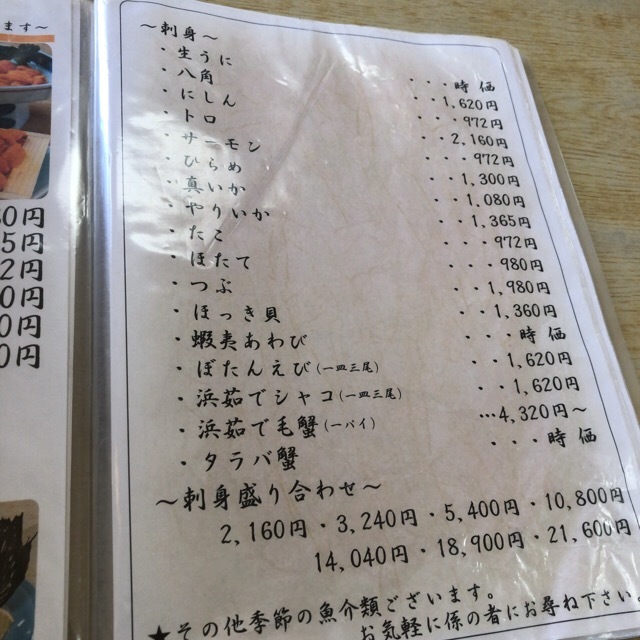 ます～
0円
5円
2円
0円
0円
0円
～刺身～
・生うに ・・・時価
・八角 ・・1,620円
・にしん ・・972円
・トロ ・・2,160円
・サーモン ・・972円
・ひらめ ・・1,300円
・真いか ・・1,080円
・やりいか ・・1,365円
・たこ ・・972円
・ほたて ・・980円
・つぶ ・・1,980円
・ほっき貝 ・・1,360円
・蝦夷あわび ・・・時価
・ぼたんえび(一皿三尾) ・・1,620円
・浜茹でシャコ(一皿三尾) ・・1,620円
・浜茹で毛蟹(一パイ) …4,320円～
・タラバ蟹 ・・・時価
～刺身盛り合わせ～
2,160円・3,240円・5,400円・10,800円
14,040円・18,900円・21,600円
★その他季節の魚介類ございます。
お気軽に係の者にお尋ね下さい。